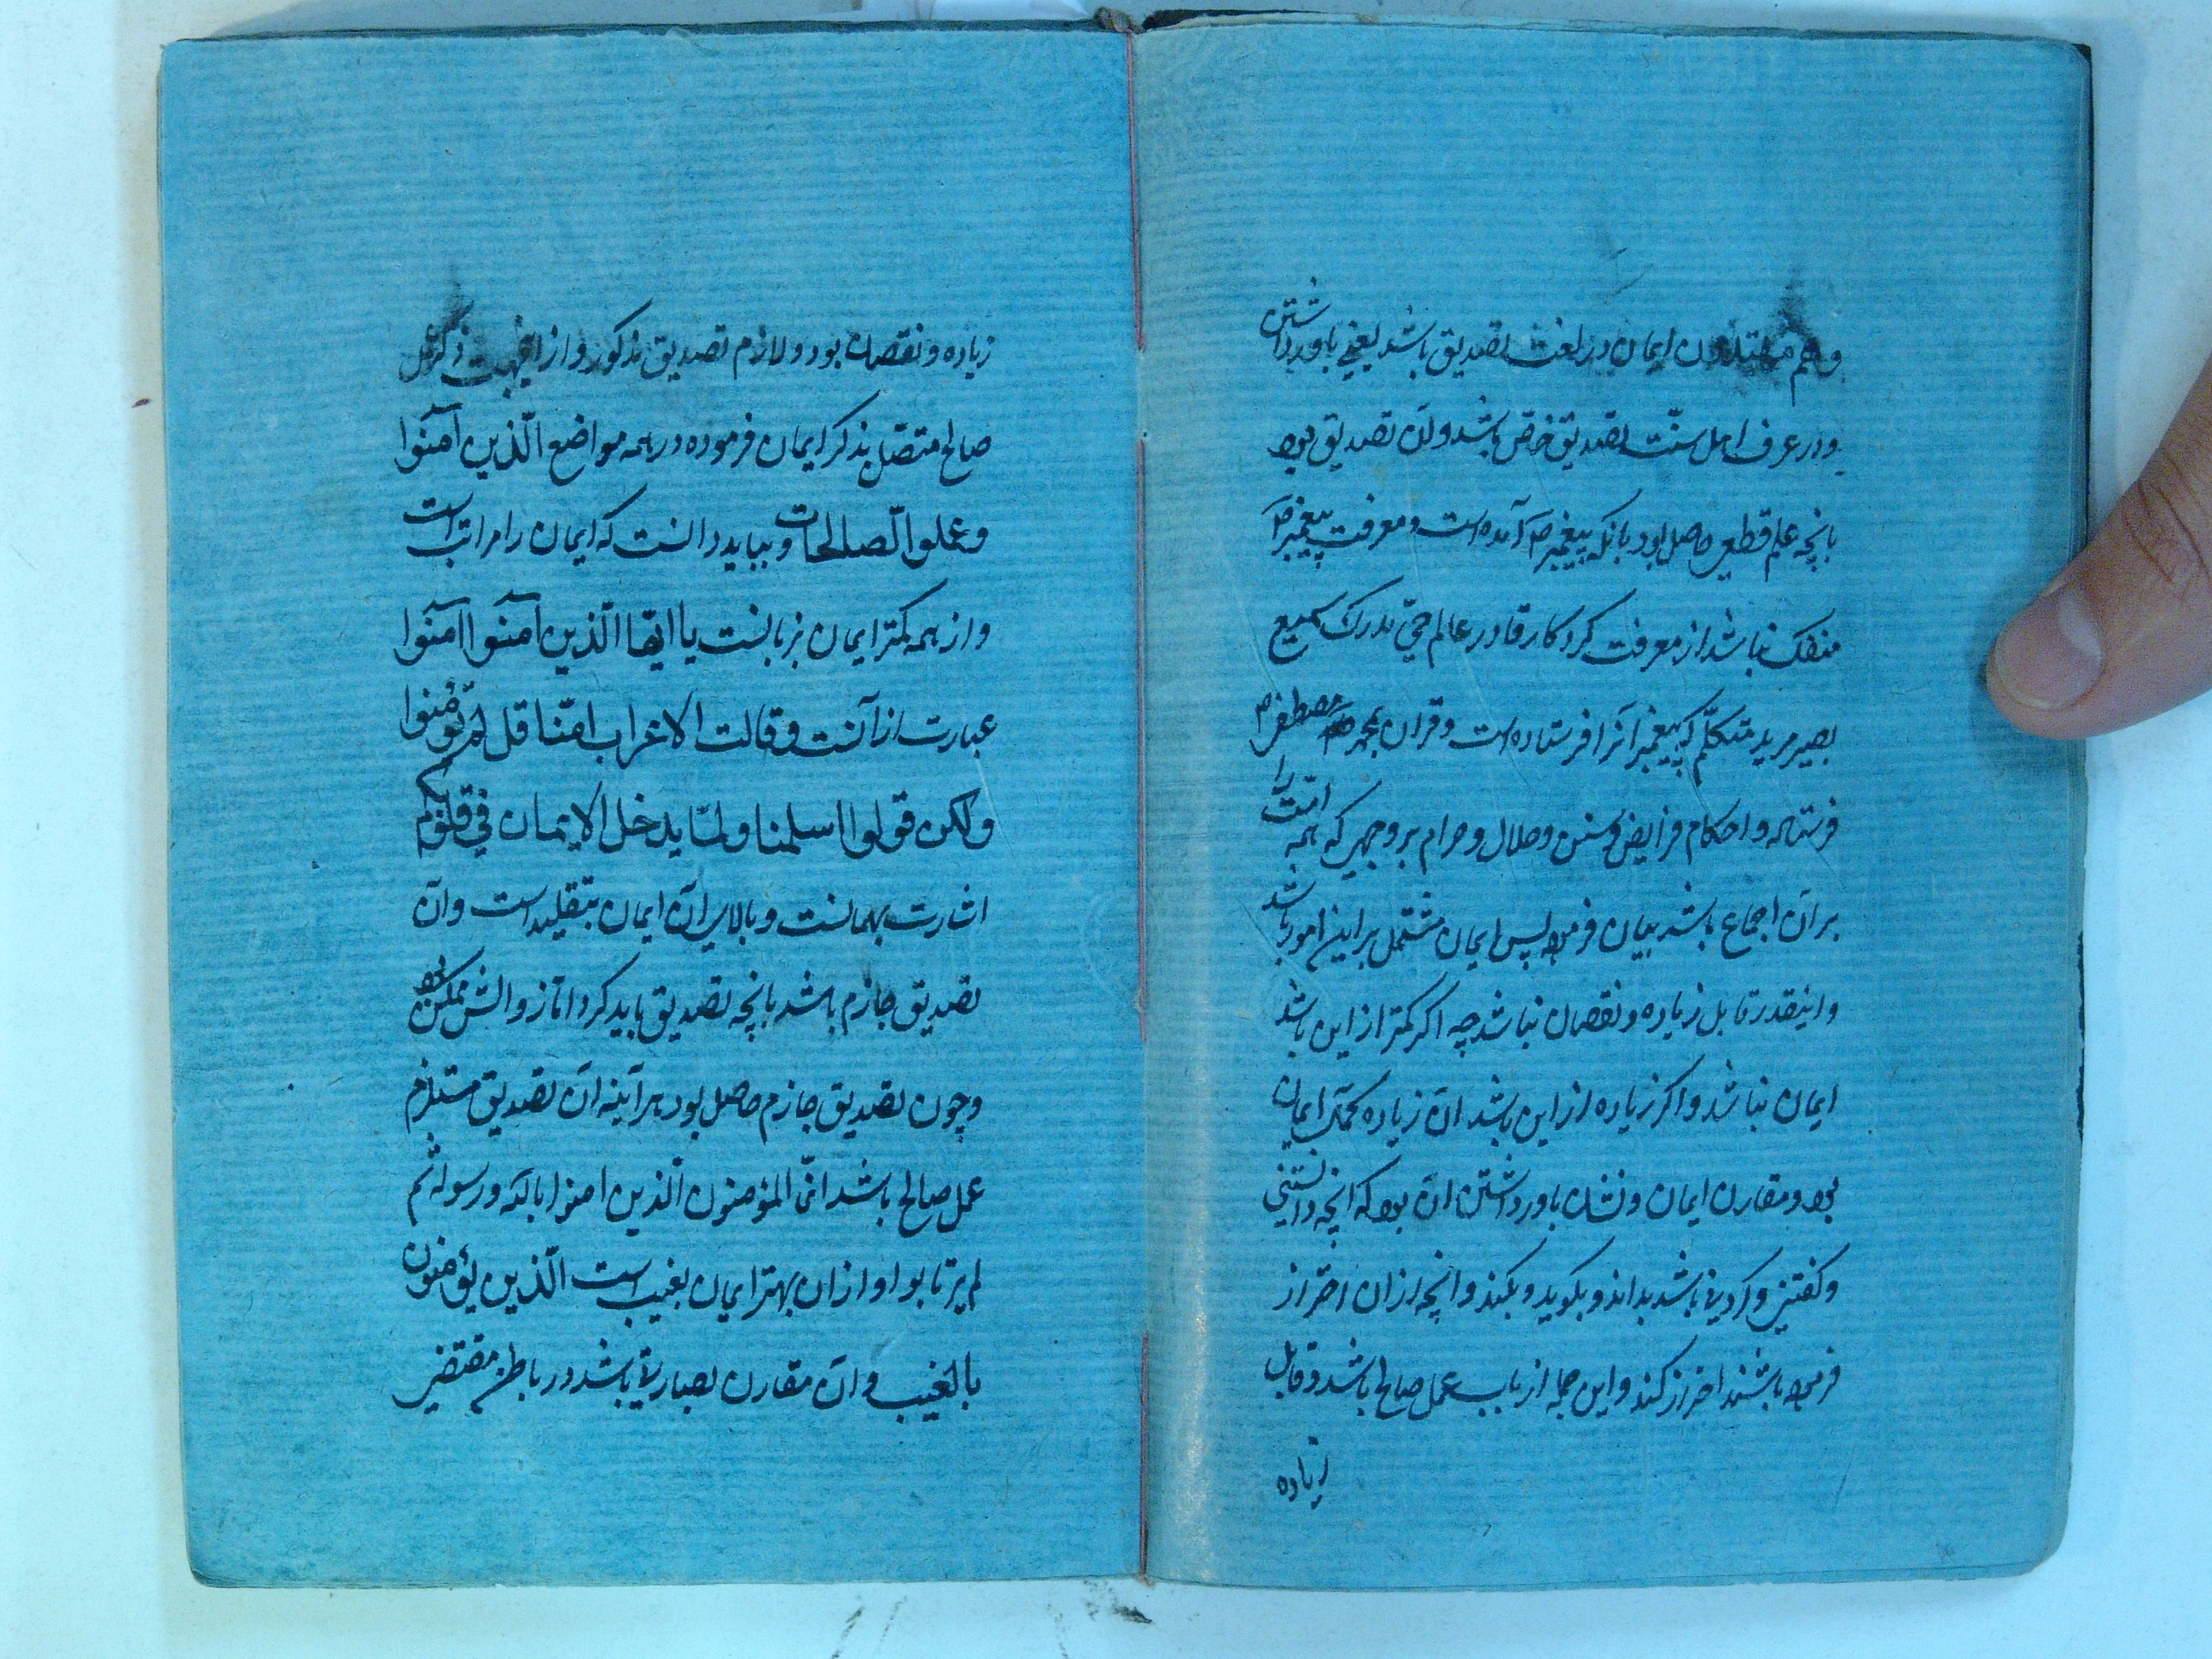 وهم مهتدون ایمان در لغت تصدیق باشد یعنی باور داشتن
و در عرف اهل سنّت تصدیق خاصّ باشد و آن تصدیق بود
بانچه علم قطعی حاصل بود بانکه پیغمبر ص آن آمده است و معرفت پیغمبر ص
منفک نباشد از معرفت کردکار قادر عالم حیّ مدرک سمیع
بصیر مرید متکلّم که پیغمبر آنرا فرستاده است و قرآن بمحمد مصطفی ص
فرستاده و احکام فرایض و سنن و حلال و حرام بر وجهی که همه امّت را
بر آن اجماع باشد بیان فرموده پس ایمان مشتمل بر این امور باشد
و اینقدر قابل زیاده و نقصان نباشد چه اکر کمتر از این باشد
ایمان نباشد و اکر زیاده از این باشد آن زیاده کمال ایمان
بود و مقارن ایمان و نشان باور داشتن آن بود که انچه دانستنی
و کفتنی و کردنی باشد بداند و بکوید و بکند و انچه از آن احتراز
فرموده باشند احتراز کند و این جمله از باب عمل صالح باشد و قابل
زیاده
زیاده و نقصان بود و لازم تصدیق مذکور و از اینجهت ذکر عمل
صالح متصّل بذکر ایمان فرموده در همه مواضع الّذین آمنوا
و عملوا الصّالحات و بباید دانست که ایمان را مراتب است
و از همه کمتر ایمان بزبانست یا ایّها الّذین آمنوا آمنوا
عبارت از آنست و قالت الاعراب امنّا قل لم تؤمنوا
ولکن قولوا اسلمنا ولمّا یدخل الایمان فی قلوبکم
اشارت بهمانست و بالای آن ایمان بتقلید است و آن
تصدیق جازم باشد بانچه تصدیق باید کرد اما زوالش ممکن بود
و چون تصدیق جازم حاصل بود هر آینه آن تصدیق مستلزم
عمل صالح باشد انّما المؤمنون الّذین امنوا بالله و رسوله ثم
لم یرتابوا و از آن بهتر ایمان بغیب است الّذین یؤمنون
بالغیب و آن مقارن بصیرتی باشد در باطن مقتضی